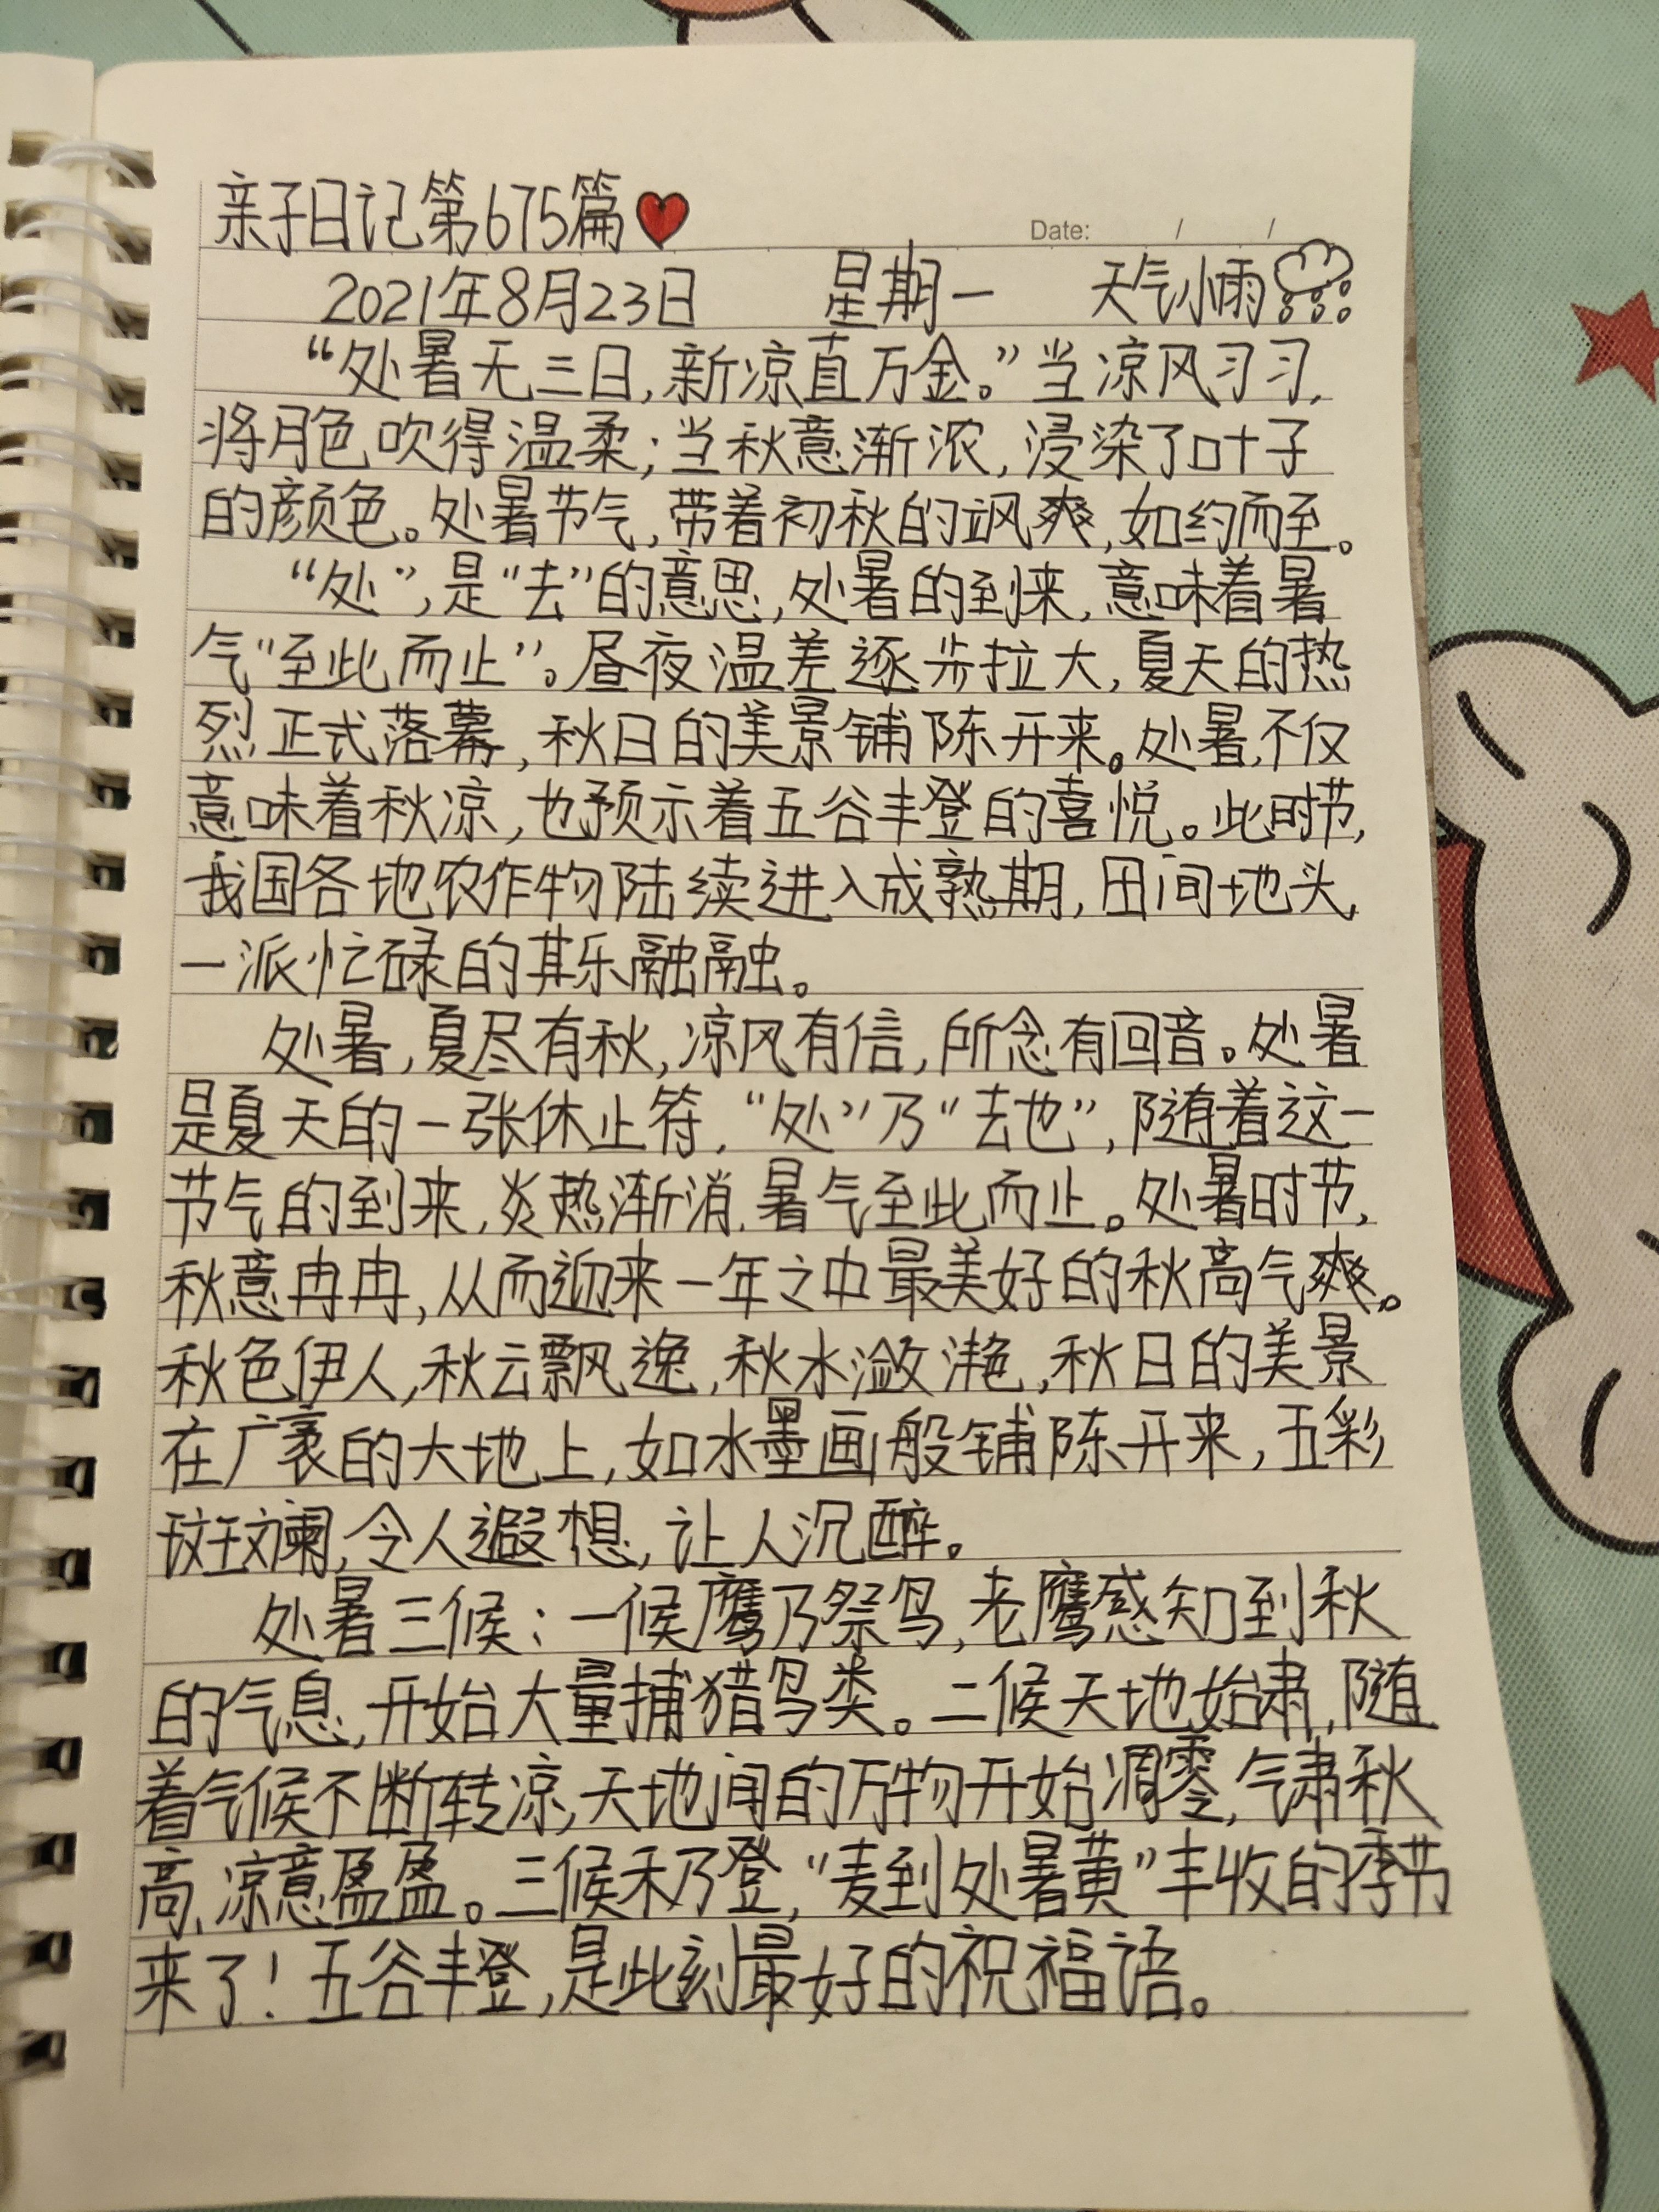 亲子日记第675篇
Date: / /
2021年8月23日 星期一 天气小雨
“处暑无三日,新凉直万金。”当凉风习习,
将月色吹得温柔;当秋意渐浓,浸染了叶子
的颜色。处暑节气,带着初秋的飒爽,如约而至。
“处”,是“去”的意思,处暑的到来,意味着暑
气“至此而止”。昼夜温差逐步拉大,夏天的热
烈正式落幕,秋日的美景铺陈开来。处暑,不仅
意味着秋凉,也预示着五谷丰登的喜悦。此时节,
我国各地农作物陆续进入成熟期,田间地头,
一派忙碌的其乐融融。
处暑,夏尽有秋,凉风有信,所念有回音。处暑
是夏天的一张休止符,“处”乃“去也”,随着这一
节气的到来,炎热渐消,暑气至此而止。处暑时节,
秋意冉冉,从而迎来一年之中最美好的秋高气爽。
秋色伊人,秋云飘逸,秋水潋滟,秋日的美景
在广袤的大地上,如水墨画般铺陈开来,五彩
斑斓,令人遐想,让人沉醉。
处暑三候:一候鹰乃祭鸟,老鹰感知到秋
的气息,开始大量捕猎鸟类。二候天地始肃,随
着气候不断转凉,天地间的万物开始凋零,气肃秋
高,凉意盈盈。三候禾乃登,“麦到处暑黄”丰收的季节
来了!五谷丰登,是此刻最好的祝福语。